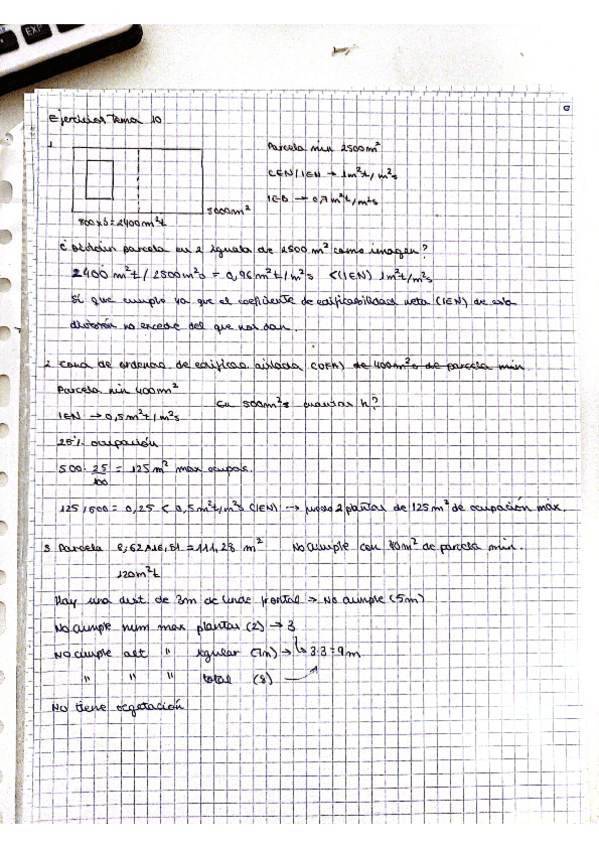 EXP
Ejercicios Tema 10
1.
Parcela min 2500m²
CEN/IEN → 1m²t/m²s
IEB → 0,7m²t/m²s
5000m²
800x3=2400m²t
¿ dividir parcela en 2 iguales de 2500 m² como imagen?
2400 m²t / 2500m²s = 0,96m²t/m²s <(IEN) 1m²t/m²s
Sí que cumple ya que el coeficiente de edificabilidad neta (IEN) de esta
división no excede del que nos dan.
2. Cond de ordenac. de edificac. aislada de 400m²s de parcela min
Parcela min 400m²
En 500m²s cuantas h?
IEN → 0,5m²t/m²s
25% ocupación
500· 25/100 = 125m² max ocupac.
125/500= 0,25 < 0,5m²t/m²s (IEN) → 2 plantas de 125m² de ocupación máx.
3. Parcela = 111,28 m² No cumple con m² de parcela min.
120m²t
Hay una dist. de 3m de linde frontal → No cumple (5m)
No cumple num max plantas (2) → 3
No cumple alt " (7m) → 3·3=9m
" " " total (8)
No tiene vegetación